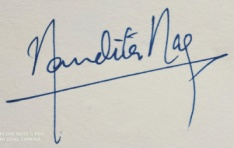 Nandita Nag